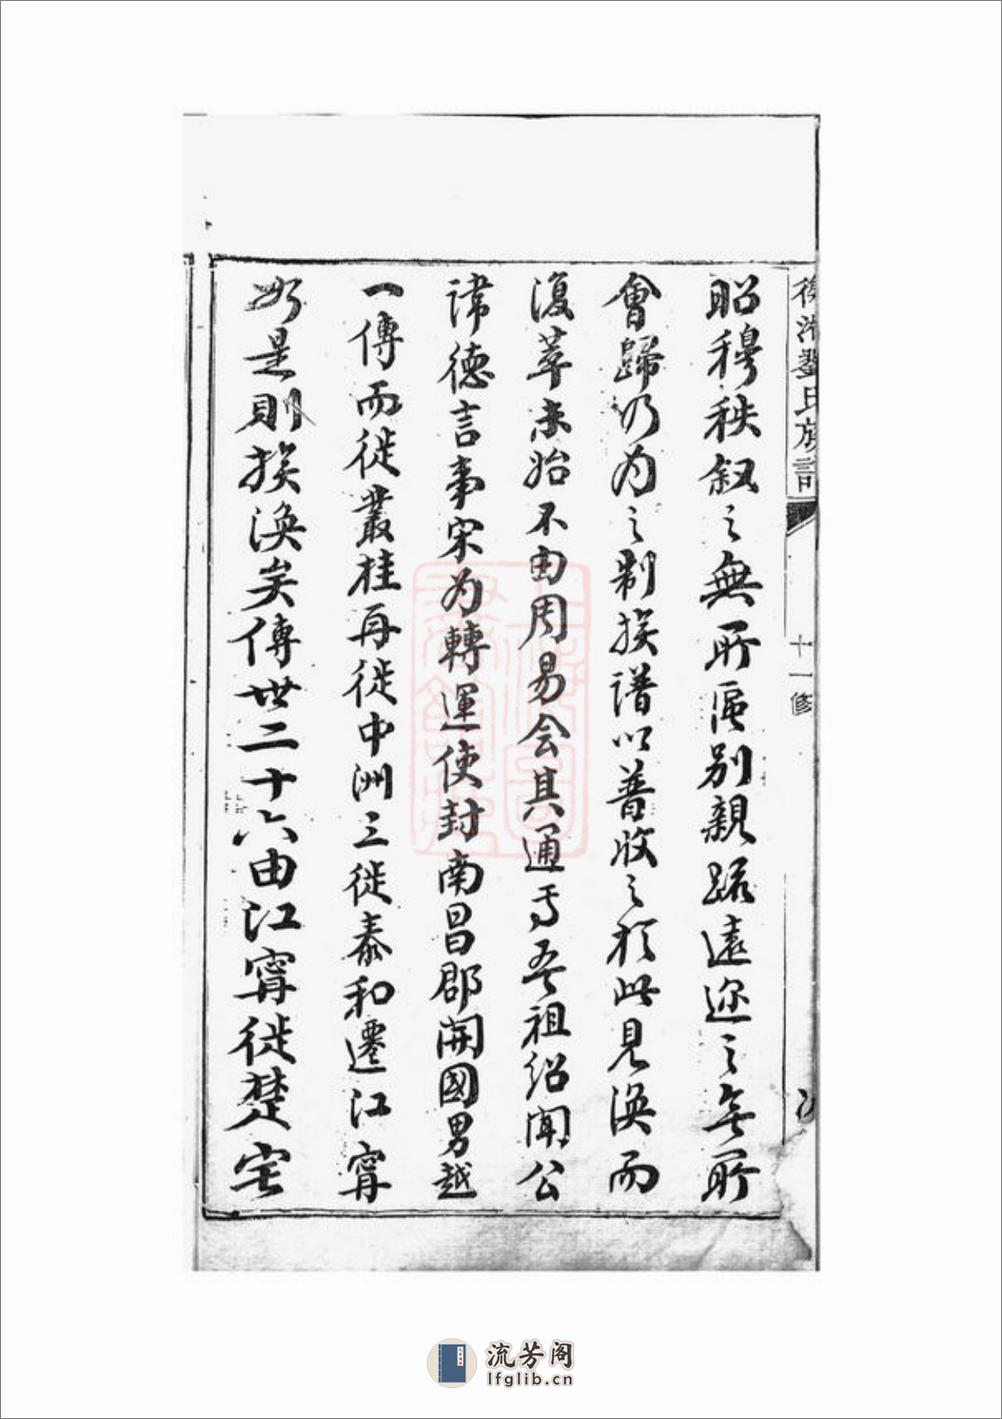 昭穆秩叙之無所區别親踈遠迩之無所
會歸乃为之制族譜以普收之於此見渙而
復萃未始不由周易会其通焉吾祖绍闻公
諱德言事宋为轉運使封南昌郡開國男越
一傳而徙叢桂再徙中洲三徙泰和遷江甯
如是則族渙矣傳世二十六由江甯徙楚宅
劉氏族譜
十一修
流芳阁
lfglib.cn